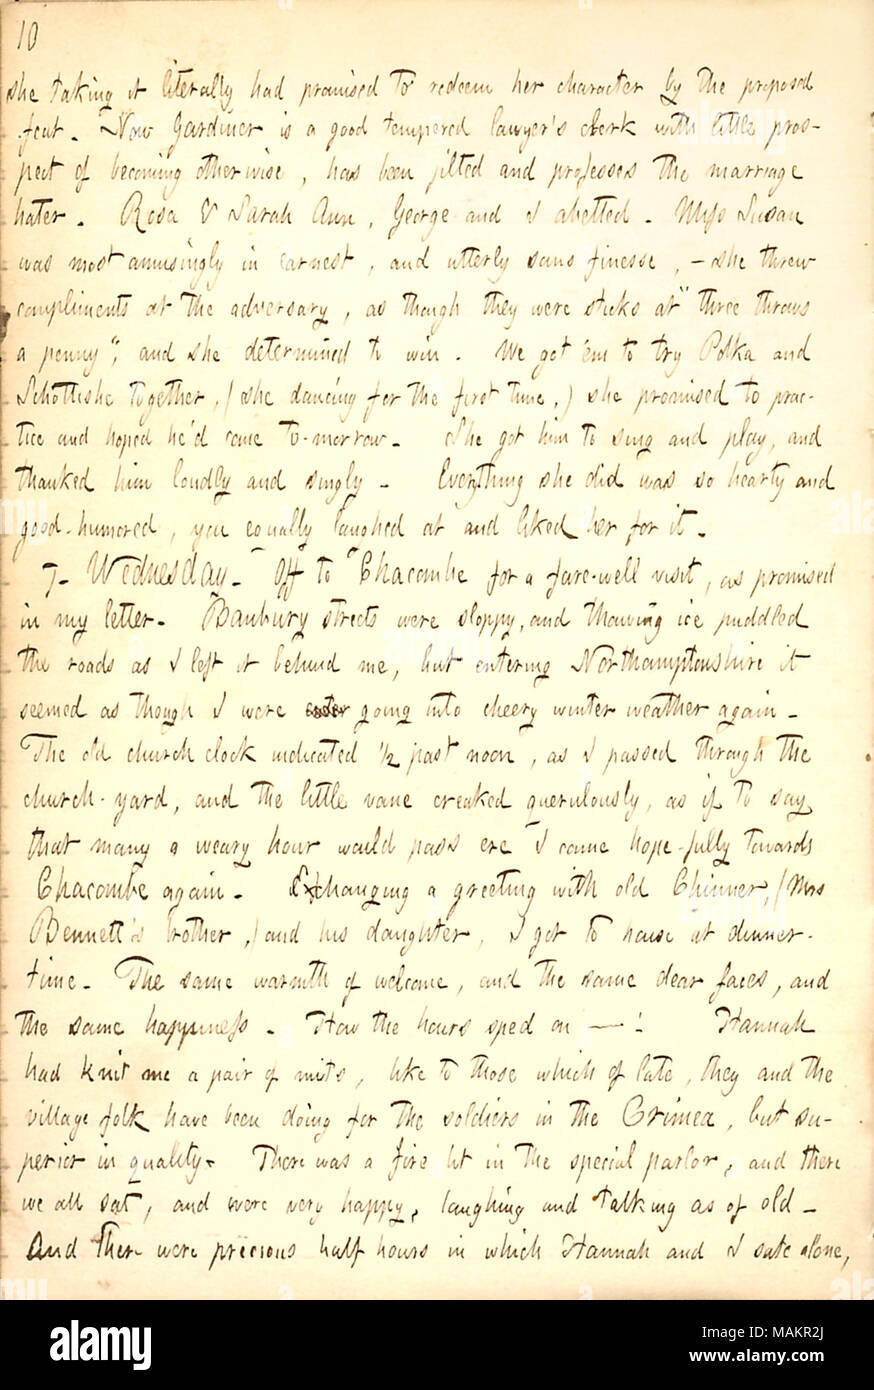 10
she taking it literally had promised to redeem her character by the proposed
feat. Now Gardiner is a good tempered lawyer's clerk with little pros-
pect of becoming otherwise, has been jilted and professes the marriage
hater. Rosa & Sarah Ann, George and I abetted. Miss Susan
was most amusingly in earnest, and utterly sans finesse, - she threw
compliments at the adversary, as though they were sticks at "three throws
a penny", and she determined to win. We got 'em to try Polka and
Schottishe together, (she dancing for the first time,) she promised to prac-
tice and hoped he'd come to-morrow. She got him to sing and play, and
thanked him loudly and singly. Everything she did was so hearty and
good-humored, you equally laughed at and liked her for it.
7. Wednesday. Off to Chacombe for a fare-well visit, as promised
in my letter. Banbury streets were sloppy, and thawing ice puddled
the roads as I left it behind me, but entering Northamptonshire it
seemed as though I were going into cheery winter weather again.
The old church clock indicated ½ past noon, as I passed through the
church-yard, and the little vane creaked querulously, as if to say
that many a weary hour would pass ere I came hope-fully towards
Chacombe again. Exchanging a greeting with old Chinner, (Mrs
Bennett's brother,) and his daughter, I got to house at dinner-
time. The same warmth of welcome, and the same dear faces, and
the same happiness. How the hours sped on —! Hannah
had knit me a pair of mits, like to those which of late, they and the
village folk have been doing for the soldiers in the Crimea, but su-
perior in quality. There was a fire lit in the special parlor, and there
we all sat, and were very happy, laughing and talking as of old.
And there were precious half hours in which Hannah and I sate alone,
alamy
Image ID: MAKR2J
www.alamy.com